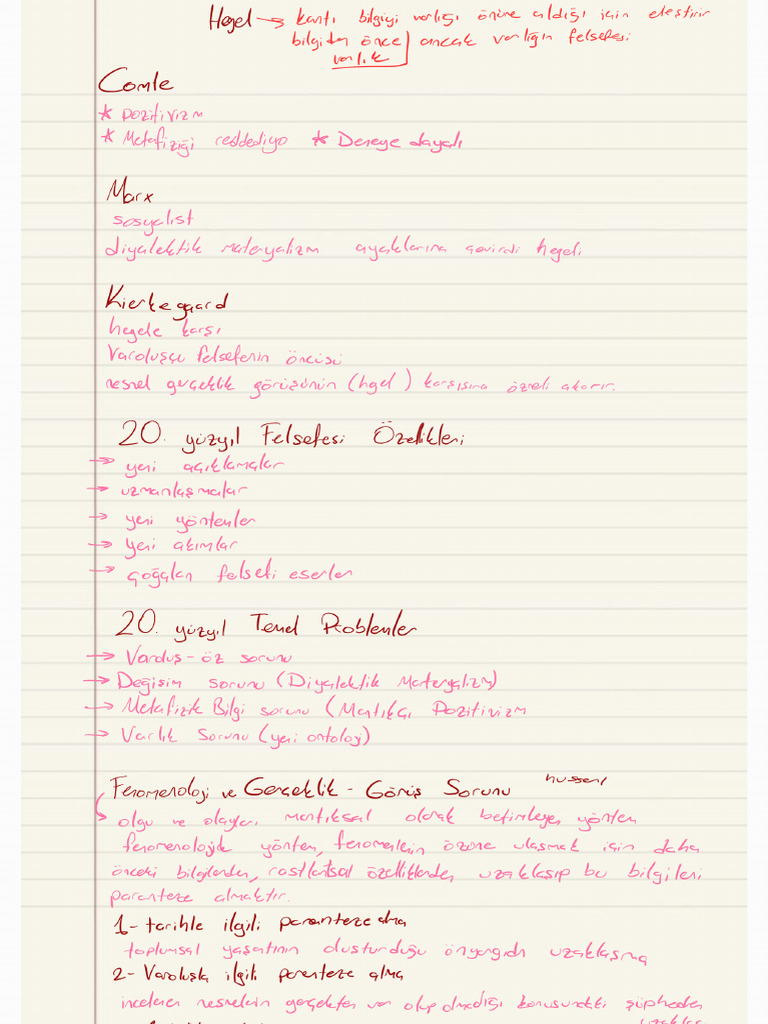 Hegel → kantı bilgiyi varlığı önüne aldığı için eleştirir
bilgiden önce ancak varlığın felsefesi
varlık
Comte
* pozitivizm
* Metafiziği reddediyo * Deneye dayalı
Marx
sosyalist
diyalektik materyalizm ayaklarına çevirdi hegeli
Kierkegaard
hegele karşı
Varoluşçu felsefenin öncüsü
nesnel gerçeklik görüşünün (hgel) karşısına özneli çıkarır.
20. yüzyıl Felsefesi Özellikleri
→ yeni açıklamalar
→ uzmanlaşmalar
→ yeni yöntemler
→ yeni akımlar
→ çoğalan felsefi eserler
20. yüzyıl Temel Problemler
→ Varoluş - öz sorunu
→ Değişim sorunu (Diyalektik Materyalizm)
→ Metafizik Bilgi sorunu (Mantıkçı Pozitivizm
→ Varlık Sorunu (yeni ontoloji)
Fenomenoloji ve Gerçeklik - Görüş Sorunu husserl
olgu ve olayları mantıksal olarak betimleyen yöntem
fenomenolojik yöntem, fenomenlerin özüne ulaşmak için daha
önceki bilgilerden, rastlantısal özelliklerden uzaklaşıp bu bilgileri
paranteze almaktır.
1- tarihle ilgili paranteze alma
toplumsal yaşantının oluşturduğu önyargıdan uzaklaşma
2- Varoluşla ilgili paranteze alma
incelenen nesnelerin gerçekten var olup olmadığı konusundaki şüpheden